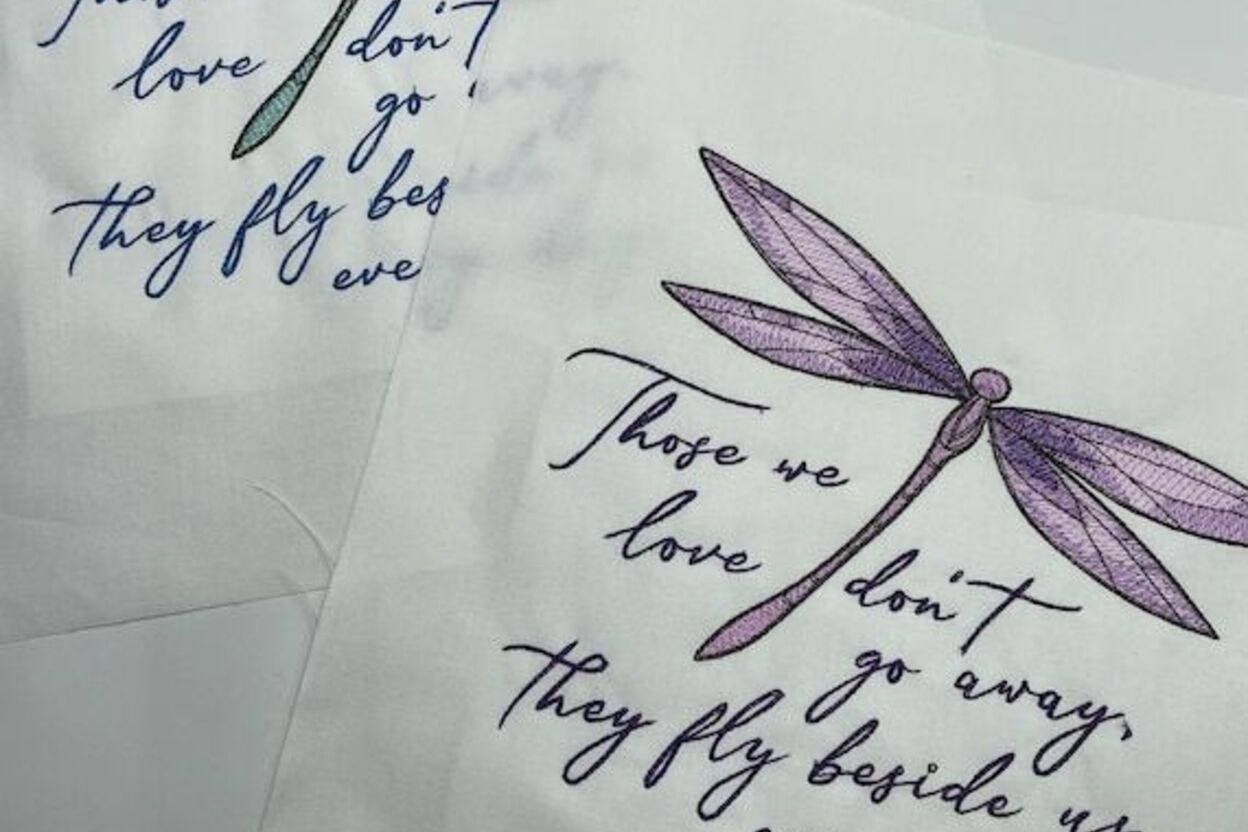 love don't
go
They fly bes
eve
Those we
love don't
go away,
They fly beside us